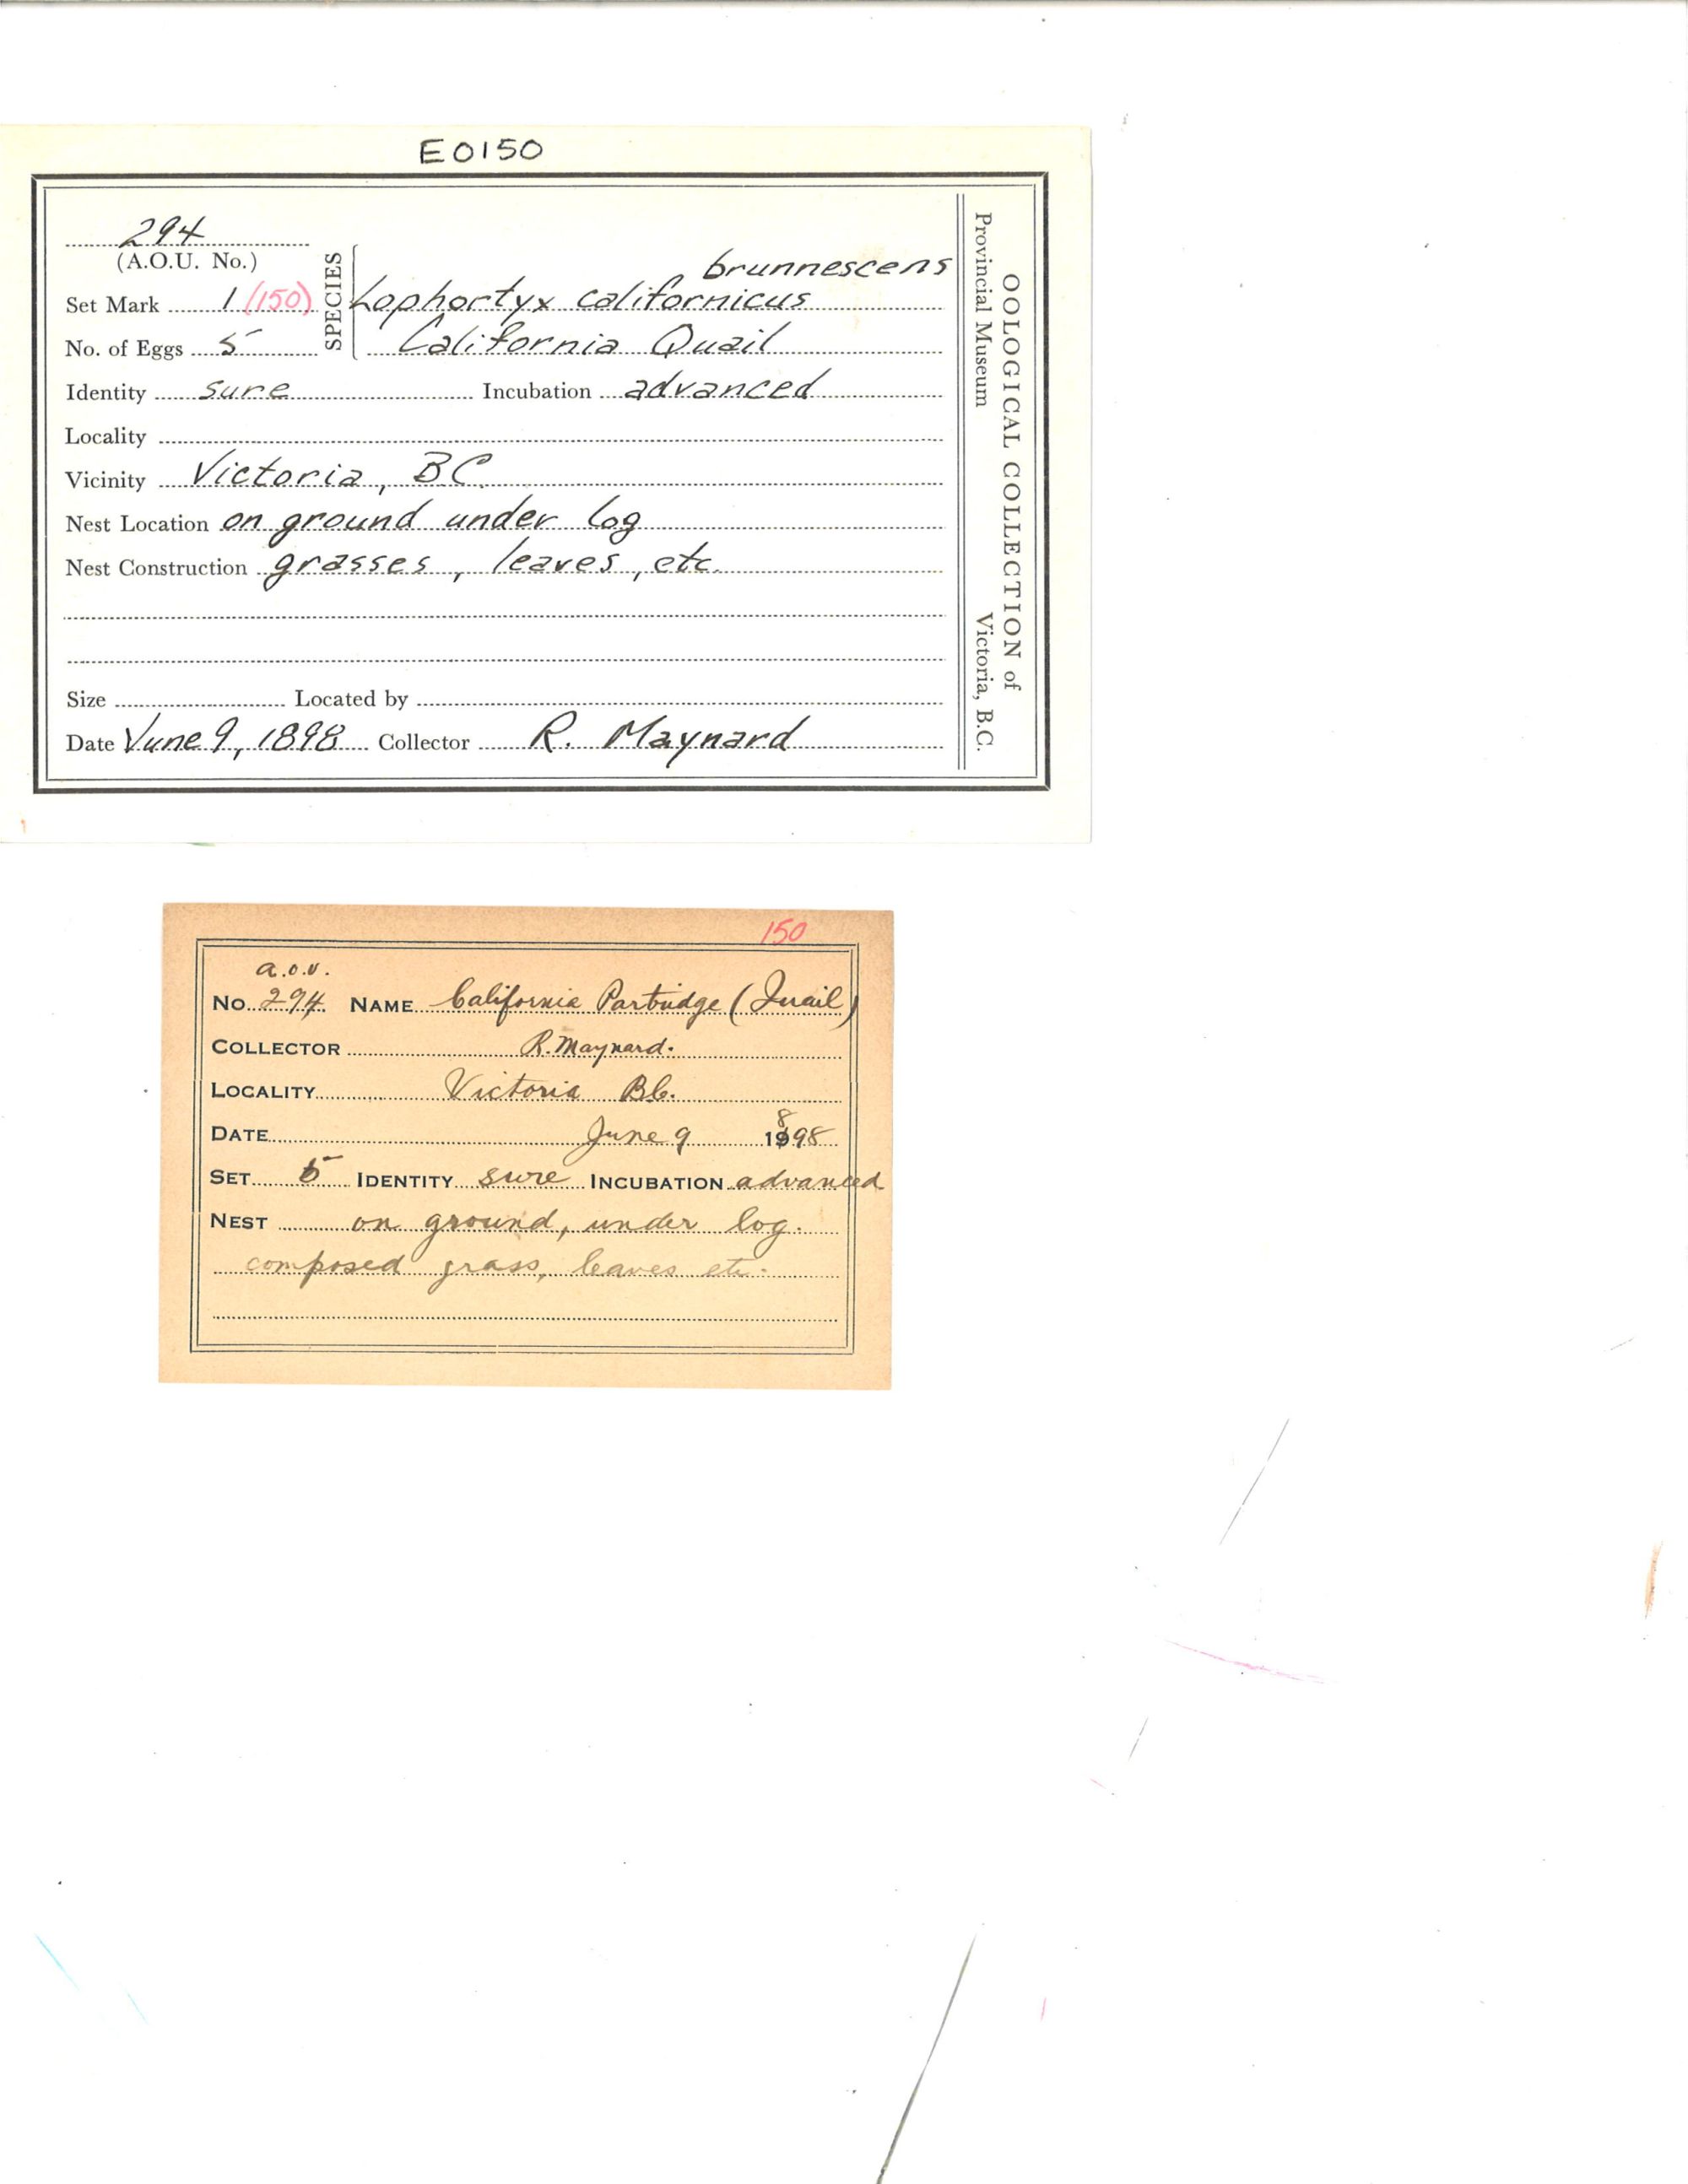 E0150
294
(A.O.U. No.)
SPECIES
brunnescens
Set Mark 1 (150) Lophortyx californicus
No. of Eggs 5 California Quail
Identity sure Incubation advanced
Locality
Vicinity Victoria, BC.
Nest Location on ground under log
Nest Construction grasses, leaves, etc.
Size Located by
Date June 9, 1898 Collector R. Maynard
OOLOGICAL COLLECTION of
Provincial Museum Victoria, B.C.
150
a.o.u.
No. 294 NAME California Partridge (Quail)
COLLECTOR R. Maynard.
LOCALITY Victoria BC.
DATE June 9 1898
SET 5 IDENTITY sure INCUBATION advanced
NEST on ground, under log.
composed grass, leaves etc.